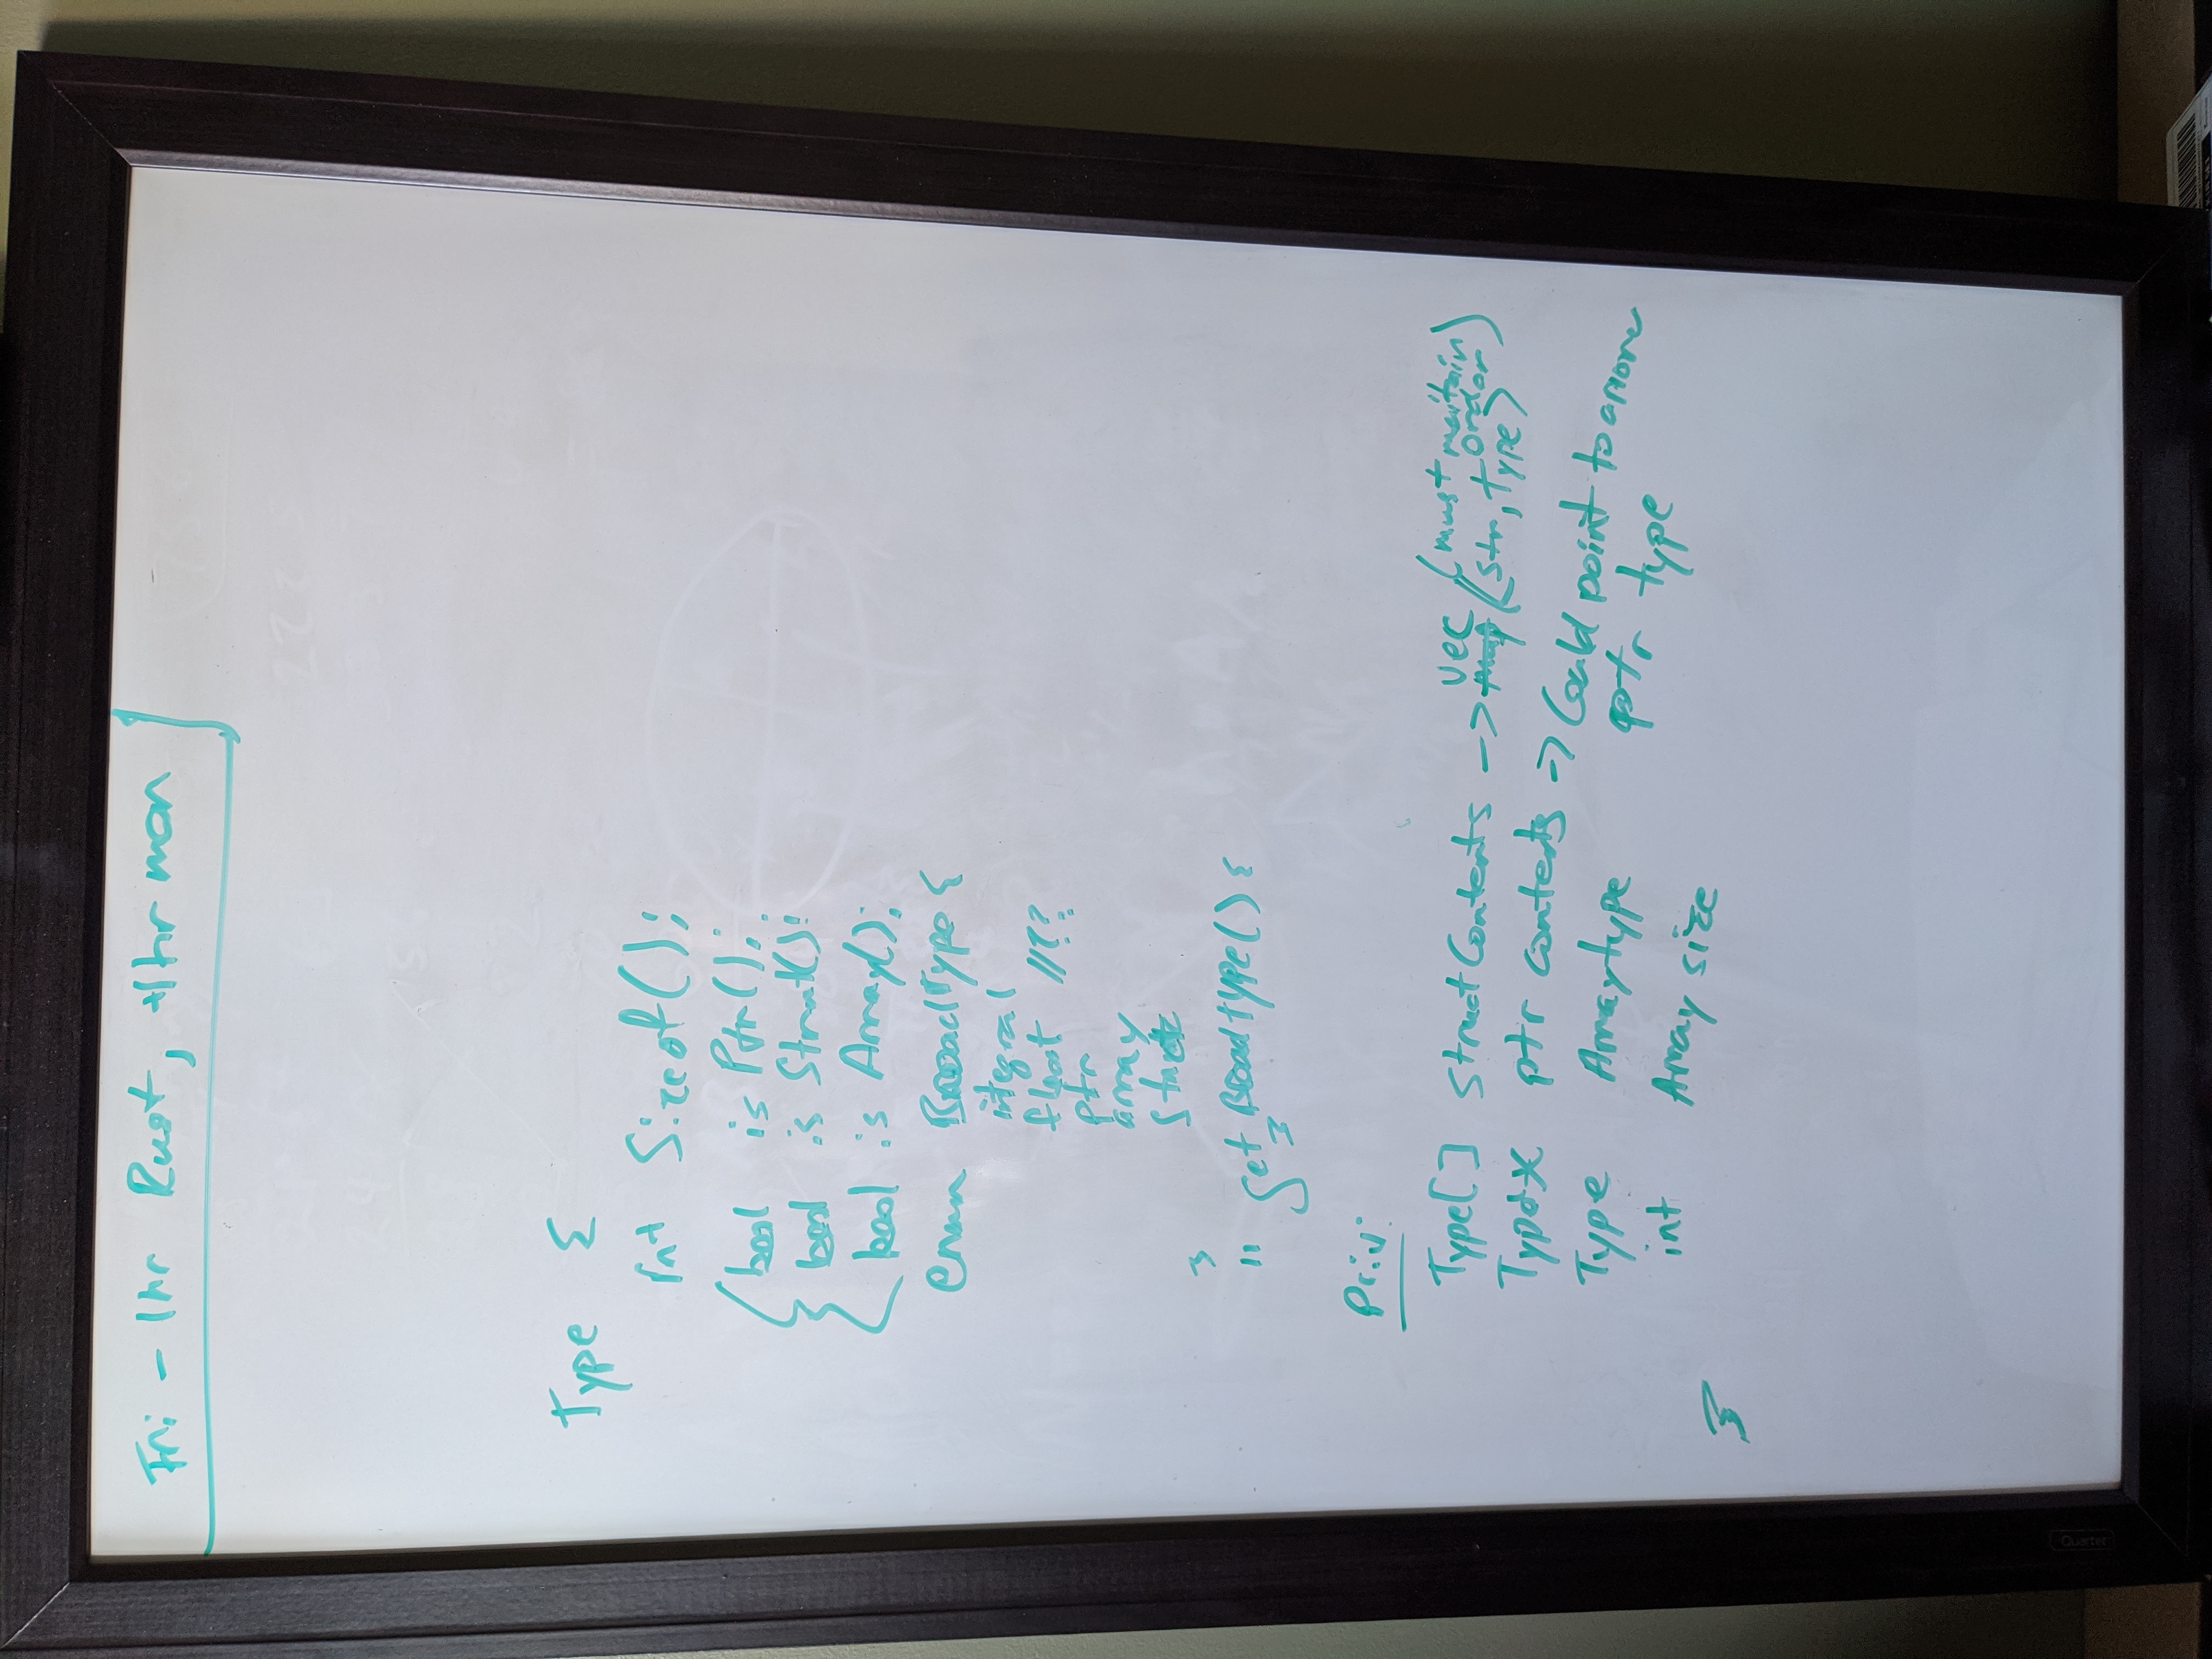 Fri - 1hr Rust, +1hr mon
Type {
int Sizeof();
bool is Ptr();
bool is Struct();
bool is Array();
enum BroadType {
integral
float //??
ptr
array
struct
}
" get Broadtype() {
}
Priv:
Type[] Struct Contents -> vec (must maitain order)
map <str, type>
Type* ptr contents -> Could point to anoner
ptr type
Type Arraytype
int Array size
}
Quartet